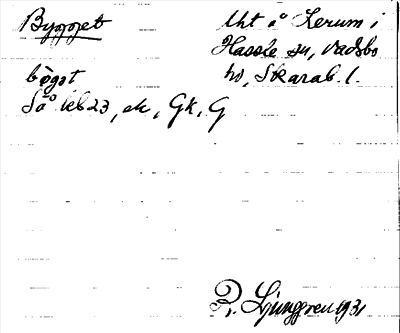 Bygget
Uht å Lerum i
Hassle sn, Vadsbo
hd, Skarab. l.
bögət
Så leb 23, ek, Gk, G
R. Ljunggren 1931